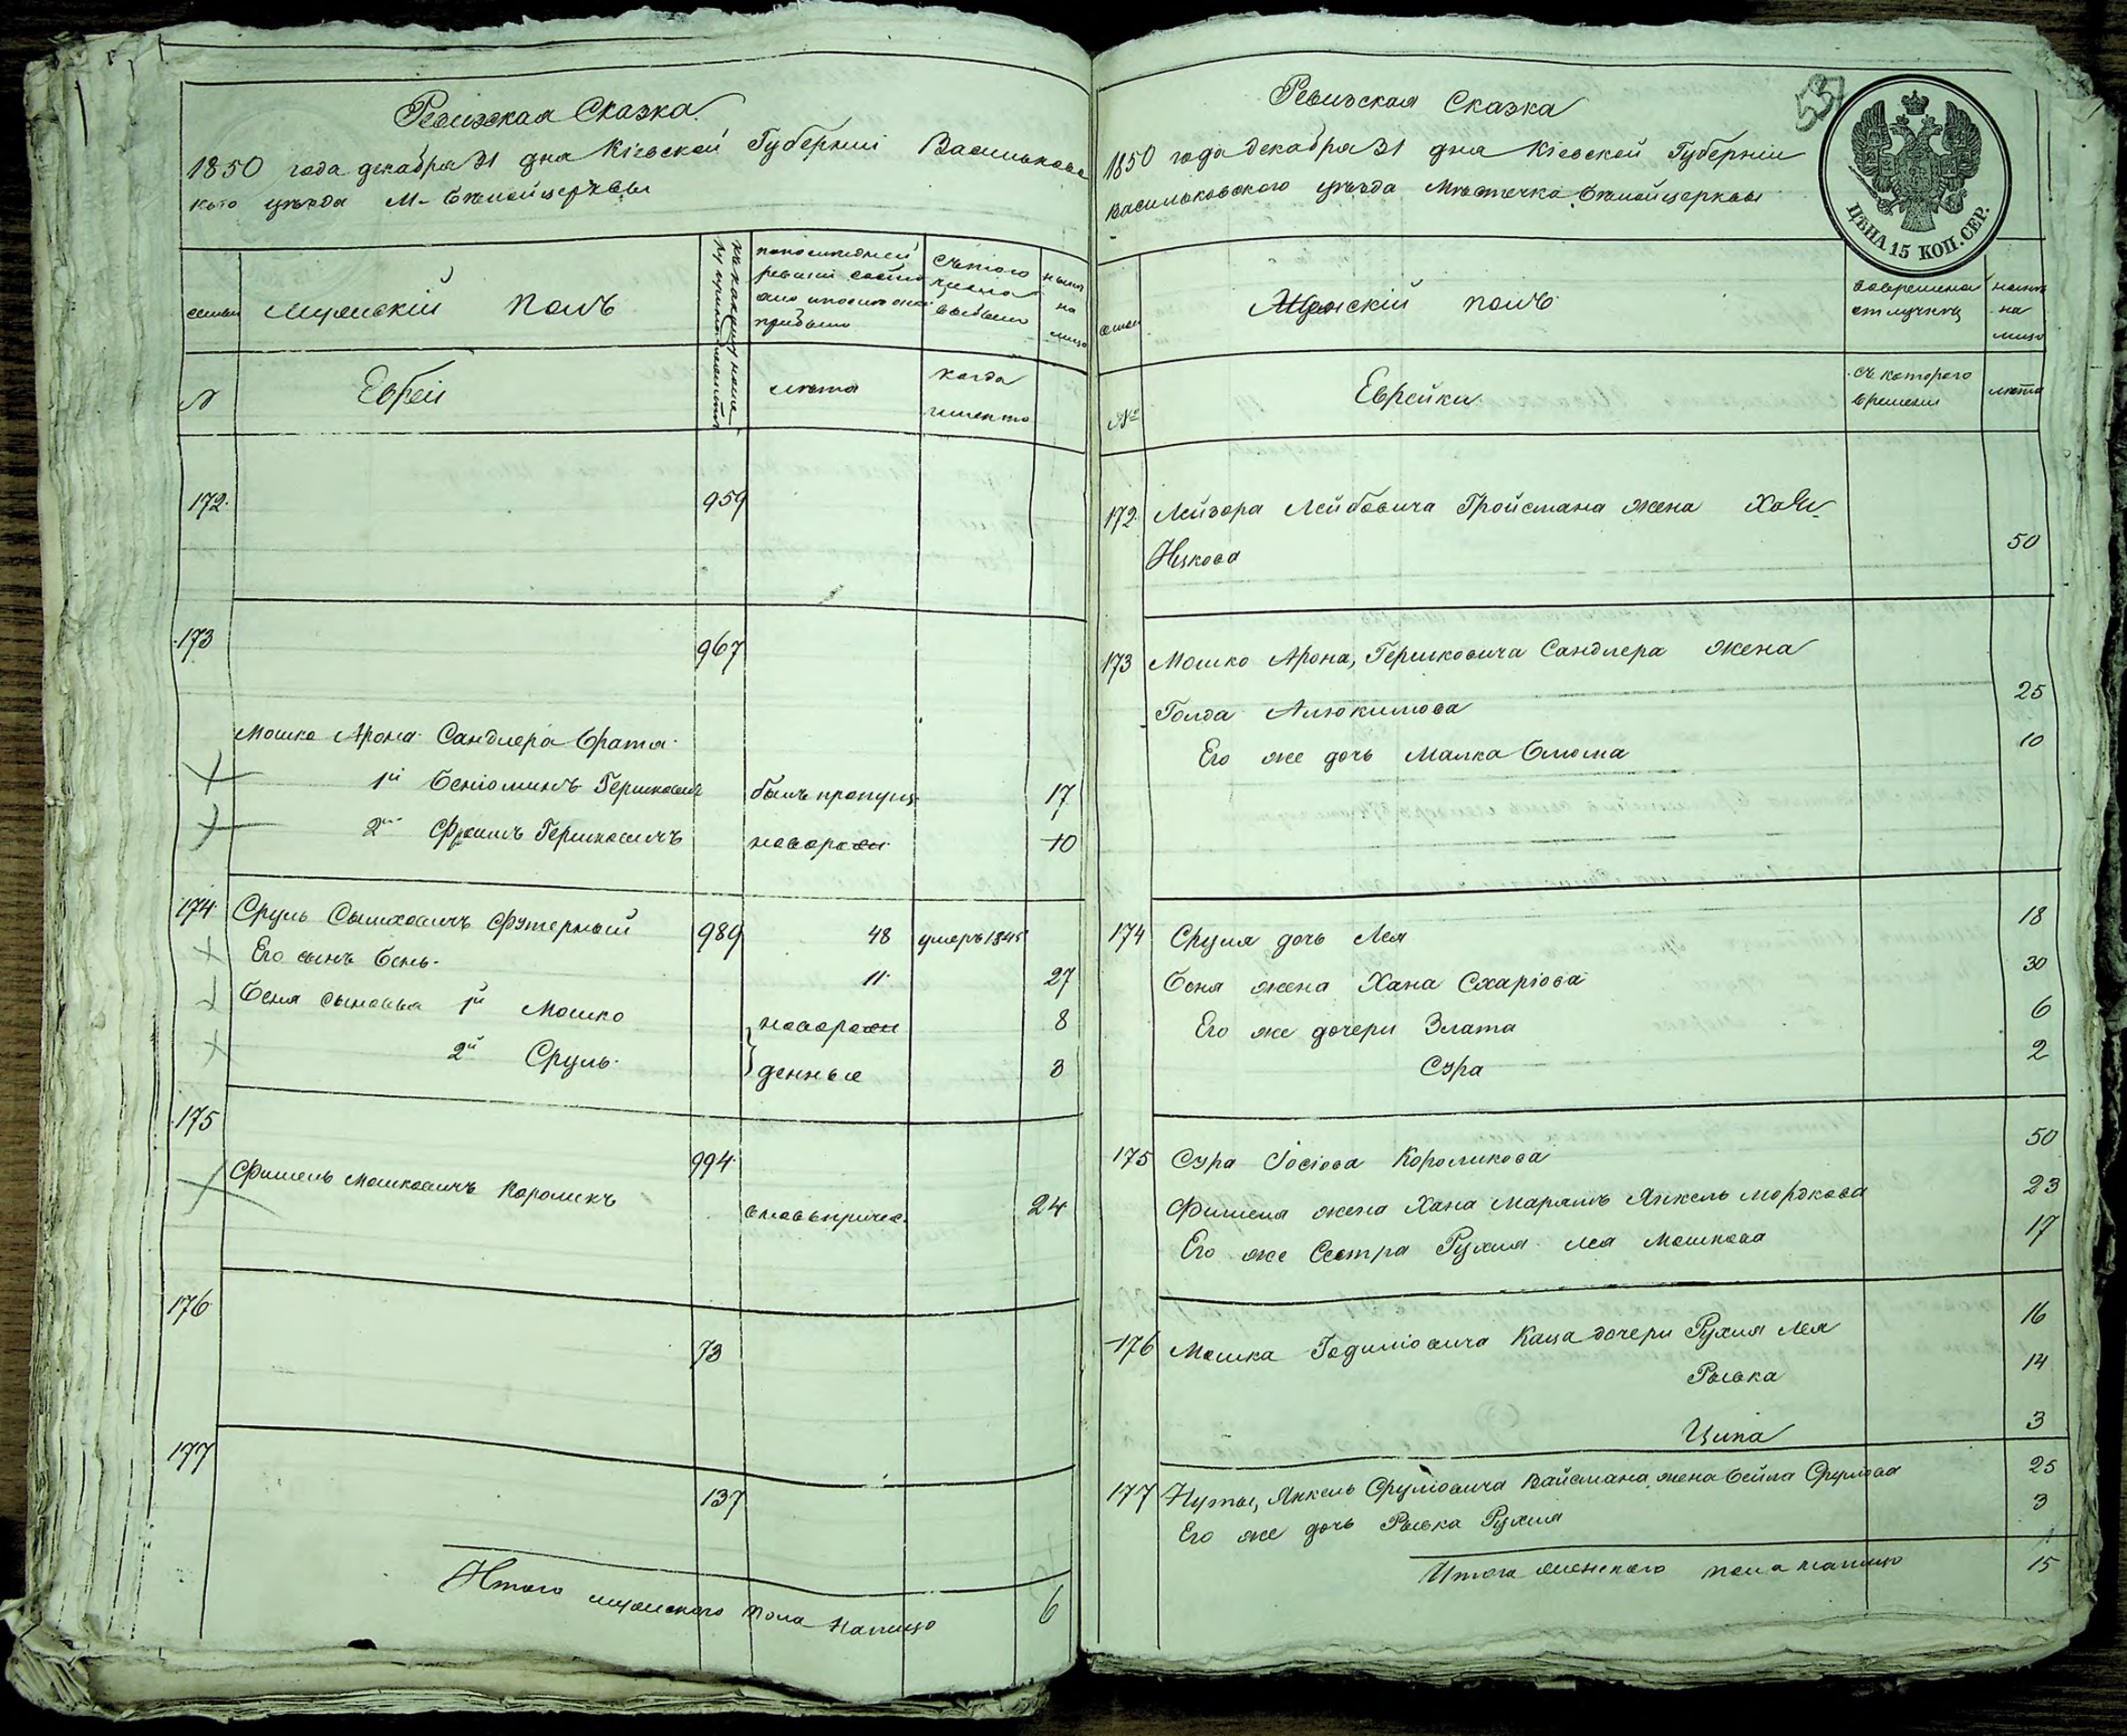 Ревизская Сказка
1850 года декабря 31 дня Кіевской Губерніи Васильковс
кого уѣзда М. Бѣлойцеркви
семьи
Мужескій полъ
по последней
ревизіи состо
яло и после оной
прибыло
Съ того
числа
выбыло
нынѣ
на
лицо
№
Евреи
лѣта
когда
именно
172. 959
173 967
Мошко Арона Сандлера братья
1й Беніоминъ Гершковичъ былъ пропущ. 17
2й Фроимъ Гершковичъ новорожд. 10
174 Сруль Сымховичъ Футерный 989 48 умеръ 1845
Его сынъ Бень. 11. 27
Беня сыновья 1й Мошко новорож 8
2й Сруль. денные 3
175
994
Фишель Мошковичъ Короликъ вновь причис. 24
176
73
177
137
Итого мужеского пола налицо 6
Ревизская Сказка
537
1850 года декабря 31 дня Кіевской Губерніи
Васильковского уѣзда Мѣстечка Бѣлойцеркви
ЦѢНА 15 КОП. СЕР.
семьи
Женскій полъ
во временной
отлучкѣ
нынѣ
на
лицо
№
Еврейки
съ которого
времени
лѣта
172. Лейзора Лейбовича Гройсмана жена Хая
Ицкова 50
173 Мошко Арона, Гершковича Сандлера жена
Голда 25
Его же дочь Малка Блюма 10
174 Сруля дочь Лея 18
Беня жена Хана Схаріова 30
Его же дочери Злата 6
Сура 2
175 Сура Іосіова Короликова 50
Фишеля жена Хана Марямъ Янкель Мордкова 23
Его же Сестра Рухля Лея Мошкова 17
176 Мошка Годиліовича Каца дочери Рухля Лея 16
Рывка 14
Ципа 3
177 Нуты, Янкель Сруліовича Вайсмана жена Бейла Срулова 25
Его же дочь Рывка Рухля 3
Итого женского пола налицо 15